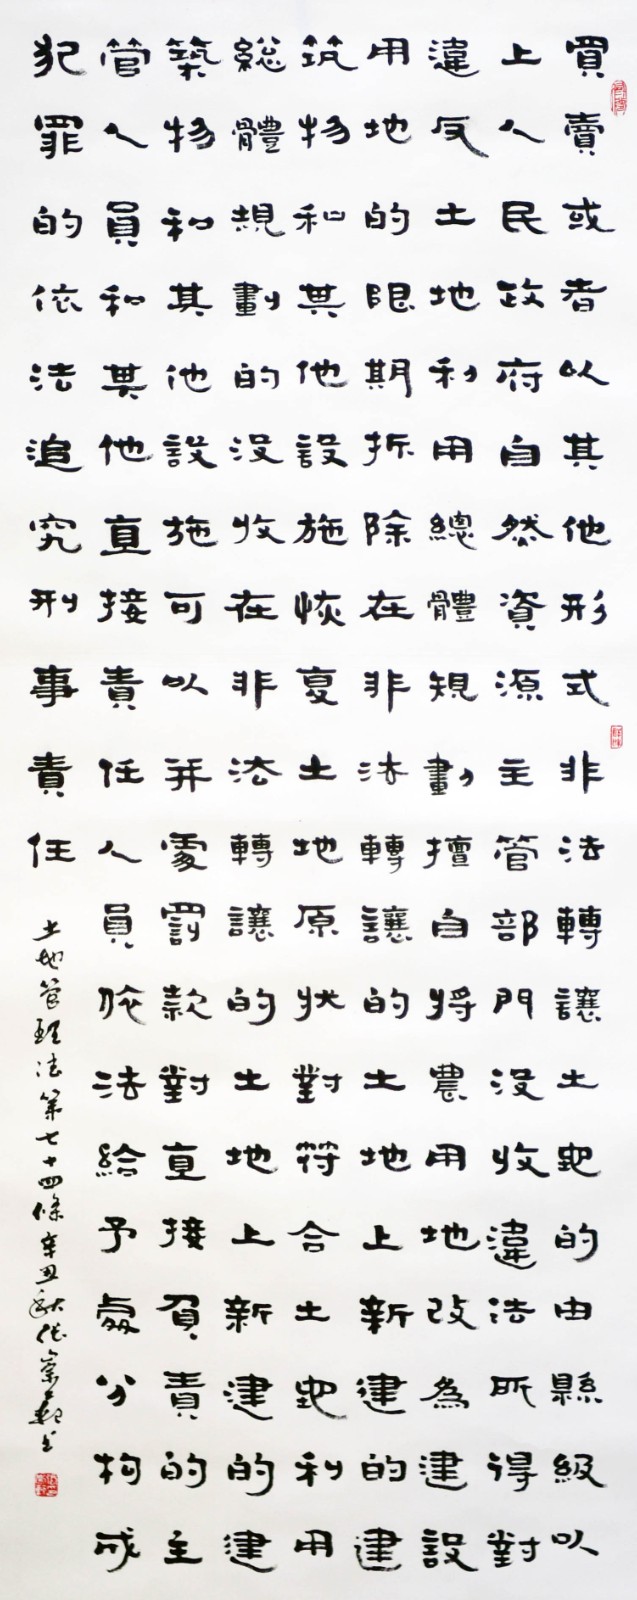 買賣或者以其他形式非法轉讓土地的由縣級以
上人民政府自然資源主管部門没收違法所得對
違反土地利用總體規劃擅自将農用地改為建設
用地的限期拆除在非法轉讓的土地上新建的建
筑物和其他設施恢复土地原状對符合土地利用
総體規劃的没收在非法轉讓的土地上新建的建
築物和其他設施可以并處罰款對直接負責的主
管人員和其他直接責任人員依法給予處分构成
犯罪的依法追究刑事責任
土地管理法第七十四條辛丑秋